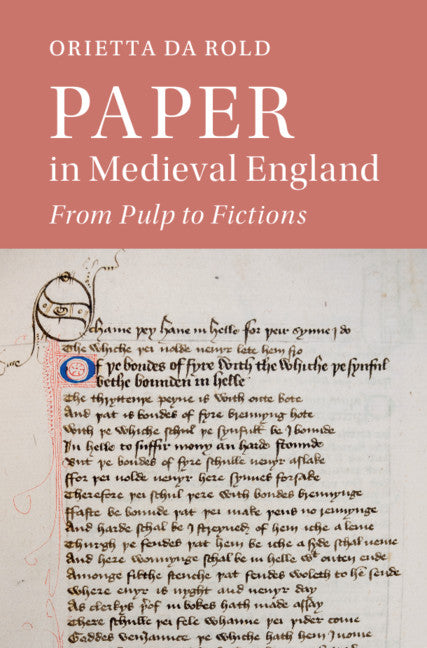 ORIETTA DA ROLD
PAPER
in Medieval England
From Pulp to Fictions
Schame þey haue in helle for þeir synne i do
The whiche þei nolde neuyr lete hem fro
Of þe bondes of fyre with the whiche þe synful
bethe bounden in helle
The thryttenþe peyne is with oute bote
And þat is bondes of fyre brennyng hote
With þe whiche schul þe synfull be I bounde
In helle to suffir mony an hard stounde
But þe bondes of fyre schulle neuyr aslake
ffor þei nolde neuyr here synnes forsake
Therefore þei schul þere with bondes brennynge
ffaste be bounde þat þei make
And harde schal be I streyned of hem iche a leme
Thurgh þe fendes þat hem be iche a syde schal
And here wonnynge schal be in helle wt outen ende
Amonge filthe stenche þat fendes woleth to hem sende
Where euyr is nyght and neuyr day
As clerkys in bokes hath made assay
There schulle þei fele whanne þei þider come
Goddes vengaunce þe whiche hath hem I nome